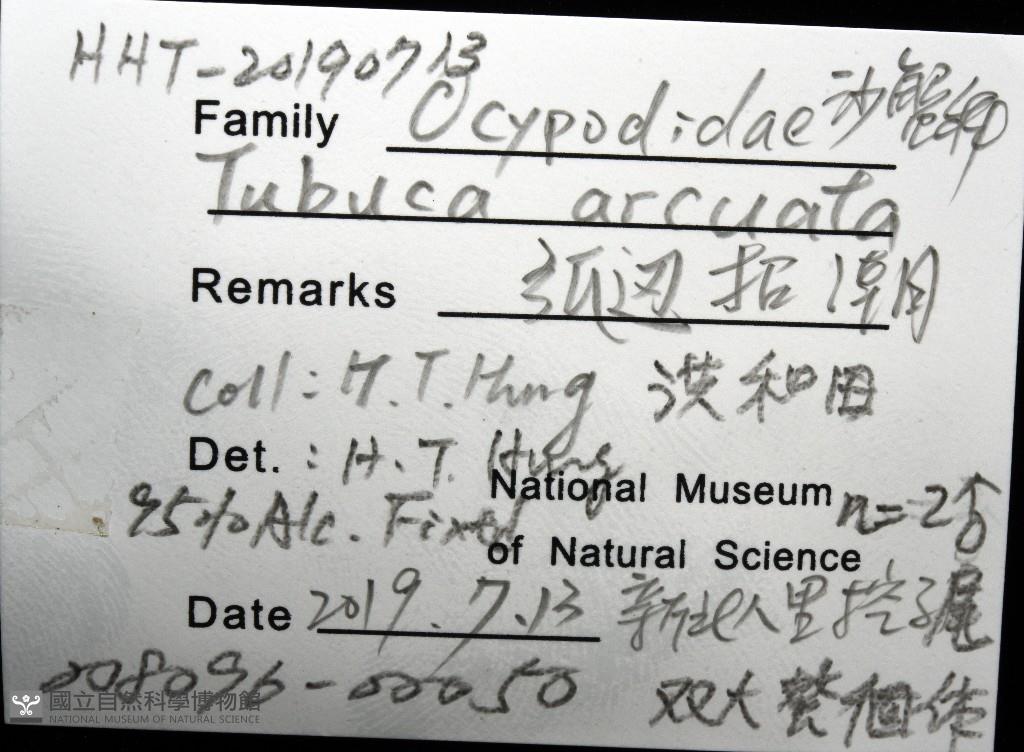 HHT-20190713
Family Ocypodidae 沙蟹科
Tubuca arcuata
Remarks 弧边招潮
Coll: H.T. Hung 洪和田
Det. : H.T. Hung
National Museum n=2♂
95% Alc. Fixed
of Natural Science
Date 2019.7.13 里挖子尾
008096-00050 双大整個体
國立自然科學博物館
NATIONAL MUSEUM OF NATURAL SCIENCE